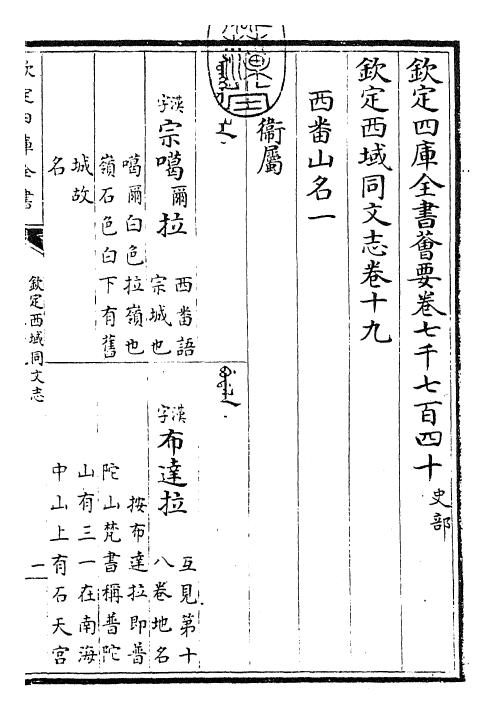 欽定四庫全書薈要卷七千七百四十 史部
欽定西域同文志卷十九
西番山名一
衛屬
漢字 宗噶爾拉 西番語
宗城也
噶爾白色拉嶺也
嶺石色白下有舊
城故
名
漢字 布達拉 互見第十
八卷地名
按布達拉即普
陀山梵書稱普陀
山有三一在南海
中山上有石天宮
欽定四庫全書
欽定西域同文志
一